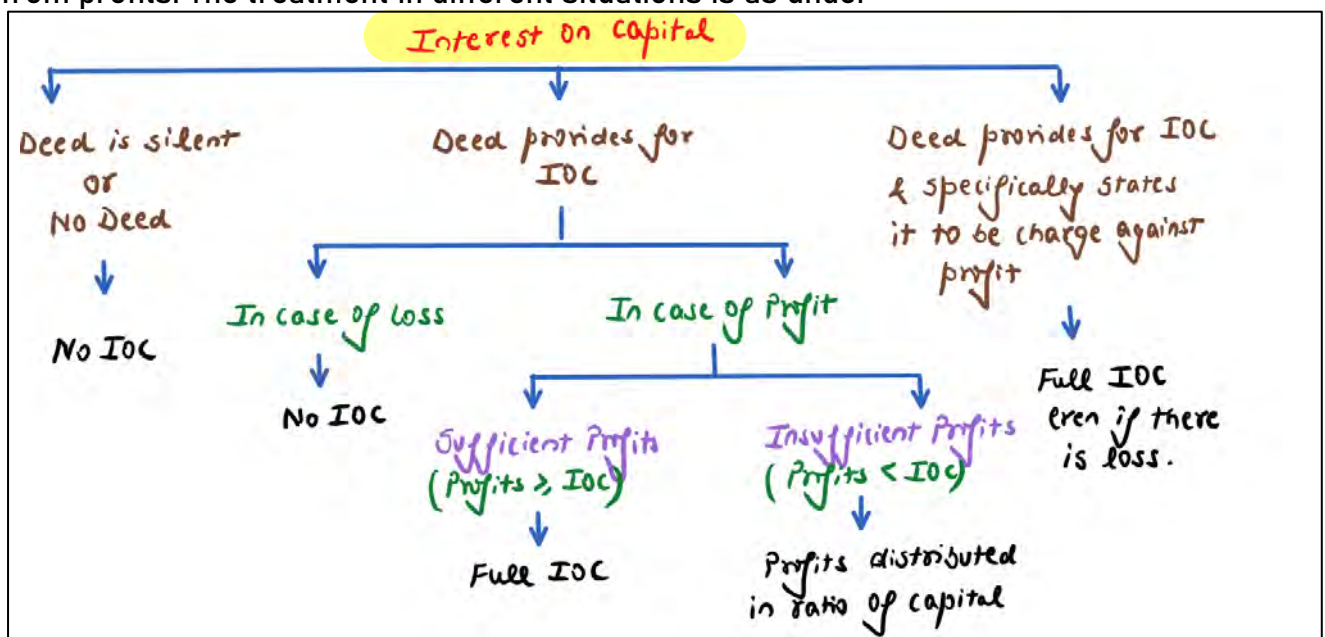 from profits. The treatment in different situations is as under
Interest on Capital
Deed is silent
or
No Deed
No IOC
Deed provides for
IOC
In case of Loss
No IOC
In case of Profit
Sufficient Profits
(Profits ≥ IOC)
Full IOC
Insufficient Profits
(Profits < IOC)
Profits distributed
in ratio of capital
Deed provides for IOC
& specifically states
it to be charge against
profit
Full IOC
even if there
is loss.